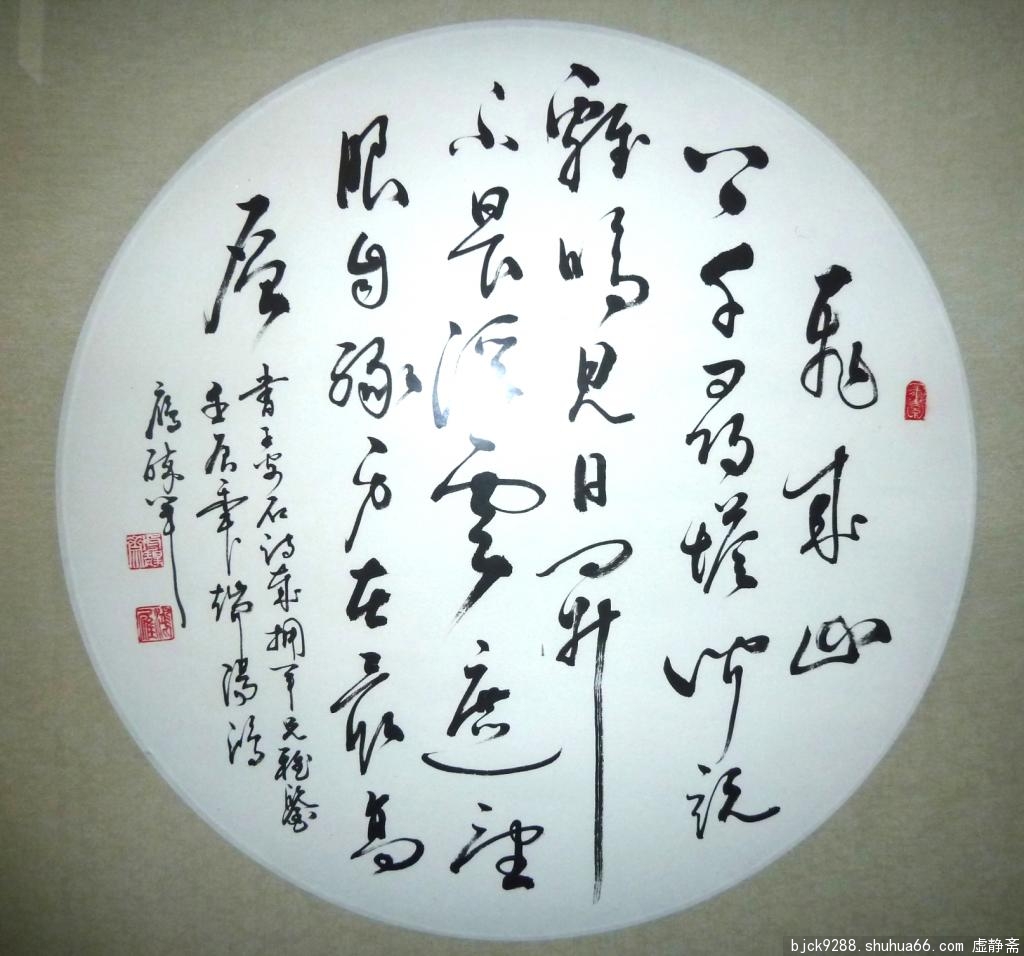 飛來山
上千尋塔聞說
雞鳴見日昇
不畏浮雲遮望
眼自緣身在最高
層
書王安石詩奉擁軍兄雅鑒
壬辰年端陽鴻
雁
bjck9288.shuhua66.com 虚静斋